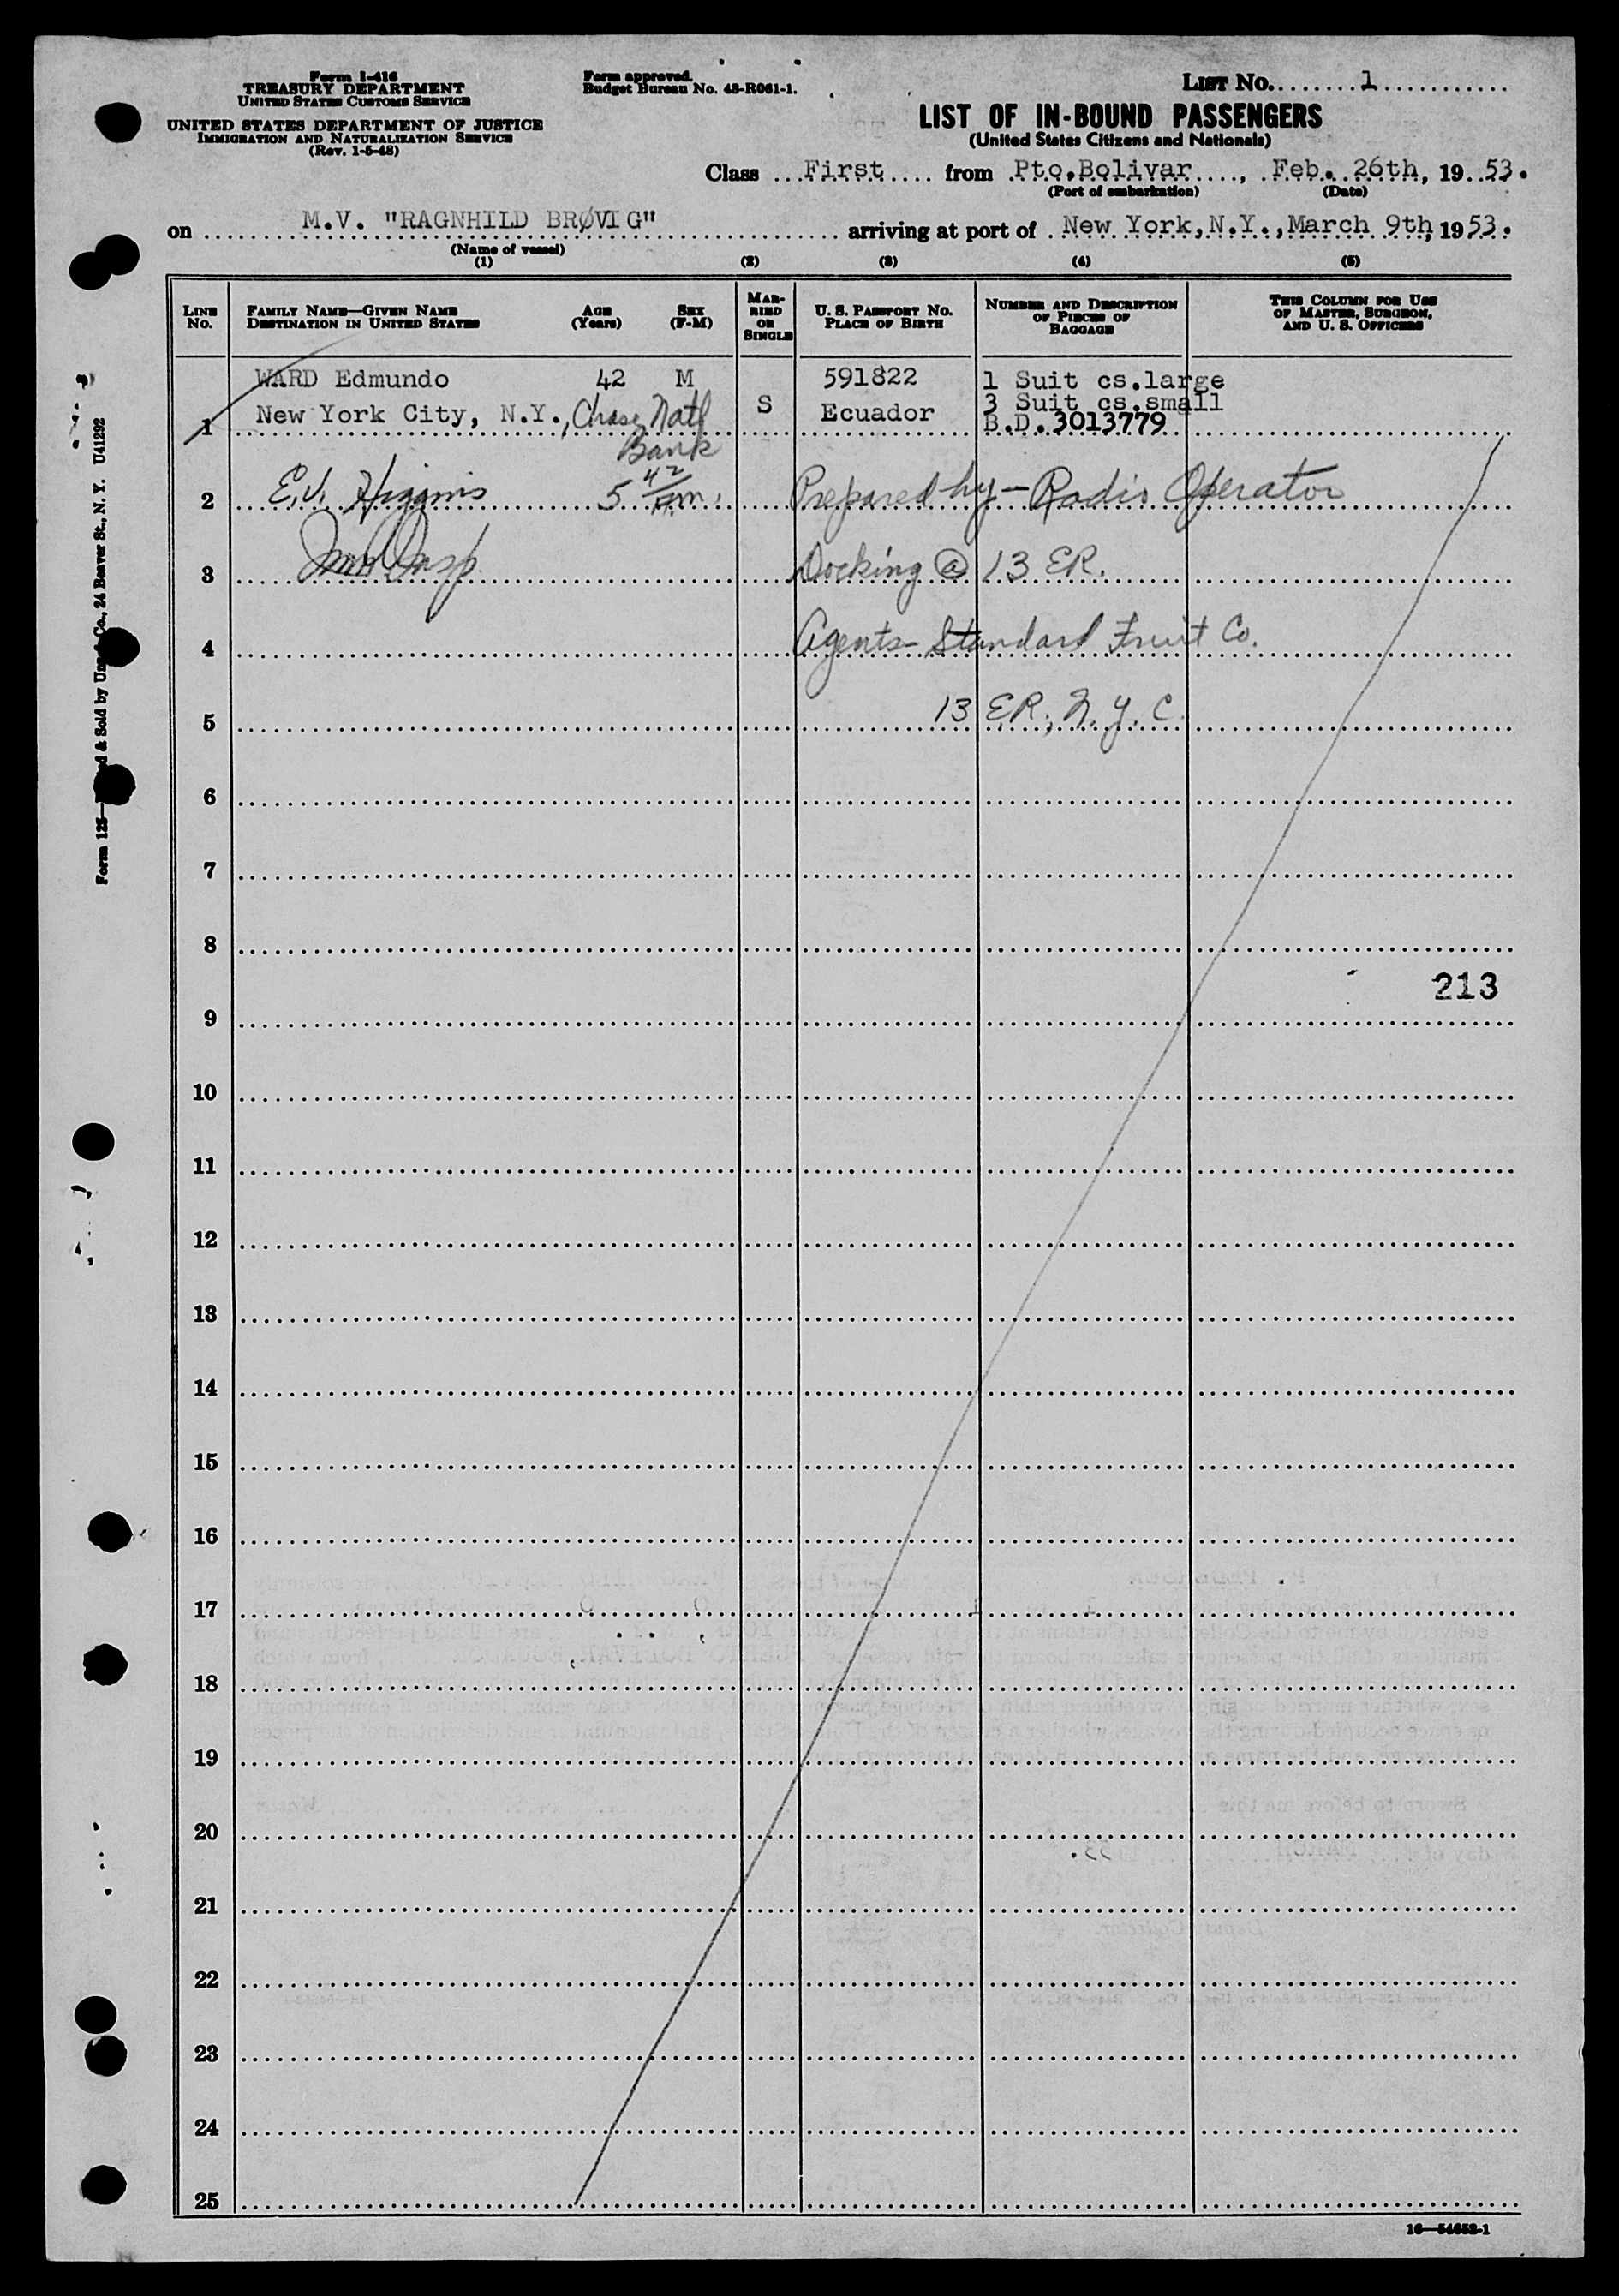 Form I-416
TREASURY DEPARTMENT
UNITED STATES CUSTOMS SERVICE
UNITED STATES DEPARTMENT OF JUSTICE
IMMIGRATION AND NATURALIZATION SERVICE
(Rev. 1-5-48)
Form approved.
Budget Bureau No. 43-R061-1.
LIST No. 1
LIST OF IN-BOUND PASSENGERS
(United States Citizens and Nationals)
Class First from Pto.Bolivar, Feb. 26th, 1953.
(Port of embarkation) (Date)
on M.V. "RAGNHILD BRØVIG" arriving at port of New York,N.Y.,March 9th, 1953.
(Name of vessel)
(1) (2) (3) (4) (5)
LINE No. FAMILY NAME—GIVEN NAME DESTINATION IN UNITED STATES AGE (Years) SEX (F-M) MARRIED OR SINGLE U. S. PASSPORT NO. PLACE OF BIRTH NUMBER AND DESCRIPTION OF PIECES OF BAGGAGE THIS COLUMN FOR USE OF MASTER, SURGEON, AND U. S. OFFICERS
WARD Edmundo 42 M 591822 1 Suit cs.large
3 Suit cs.small
1 New York City, N.Y., Chase Natl Bank S Ecuador B.D.3013779
2 E.J. Higgins 5 42 pm. Prepared by - Radio Operator
3 Insp Docking @ 13 ER.
4 Agents - Standard Fruit Co.
5 13 ER, N.Y.C.
6
7
8
213
9
10
11
12
13
14
15
16
17
18
19
20
21
22
23
24
25
16—54652-1
Form 125— & Sold by Co., 24 Beaver St., N. Y. U41292